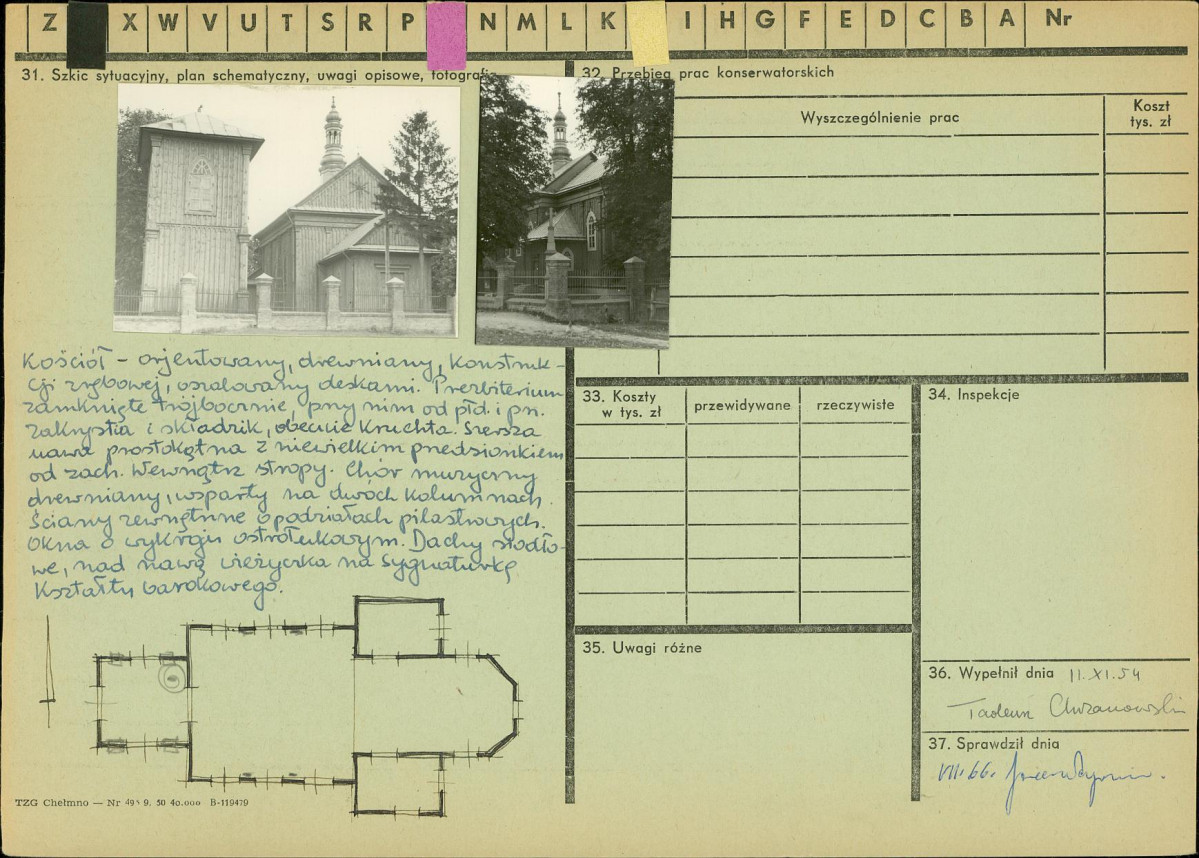 Z X W V U T S R P N M L K I H G F E D C B A Nr
31. Szkic sytuacyjny, plan schematyczny, uwagi opisowe, fotografia
Kościół – orjentowany, drewniany, konstruk-
cji zrębowej, oszalowany deskami. Prezbiterium
zamknięte trójbocznie, przy nim od płd. i pn.
zakrystia i składzik, obecnie kruchta. Szersza
nawa prostokątna z niewielkim przedsionkiem
od zach. Wewnątrz stropy. Chór muzyczny
drewniany, wsparty na dwóch kolumnach.
Ściany zewnętrzne o podziałach pilastrowych.
Okna o wykroju ostrołukowym. Dachy siodło-
we, nad nawą wieżyczka na sygnaturkę
kształtu barokowego.
TZG Chełmno — Nr 9. 50 40.000 B-119479
32. Przebieg prac konserwatorskich
Wyszczególnienie prac
Koszt
tys. zł
33. Koszty
w tys. zł
przewidywane
rzeczywiste
34. Inspekcje
35. Uwagi różne
36. Wypełnił dnia 11.XI.54
Tadeusz Chrzanowski
37. Sprawdził dnia
VII.66.